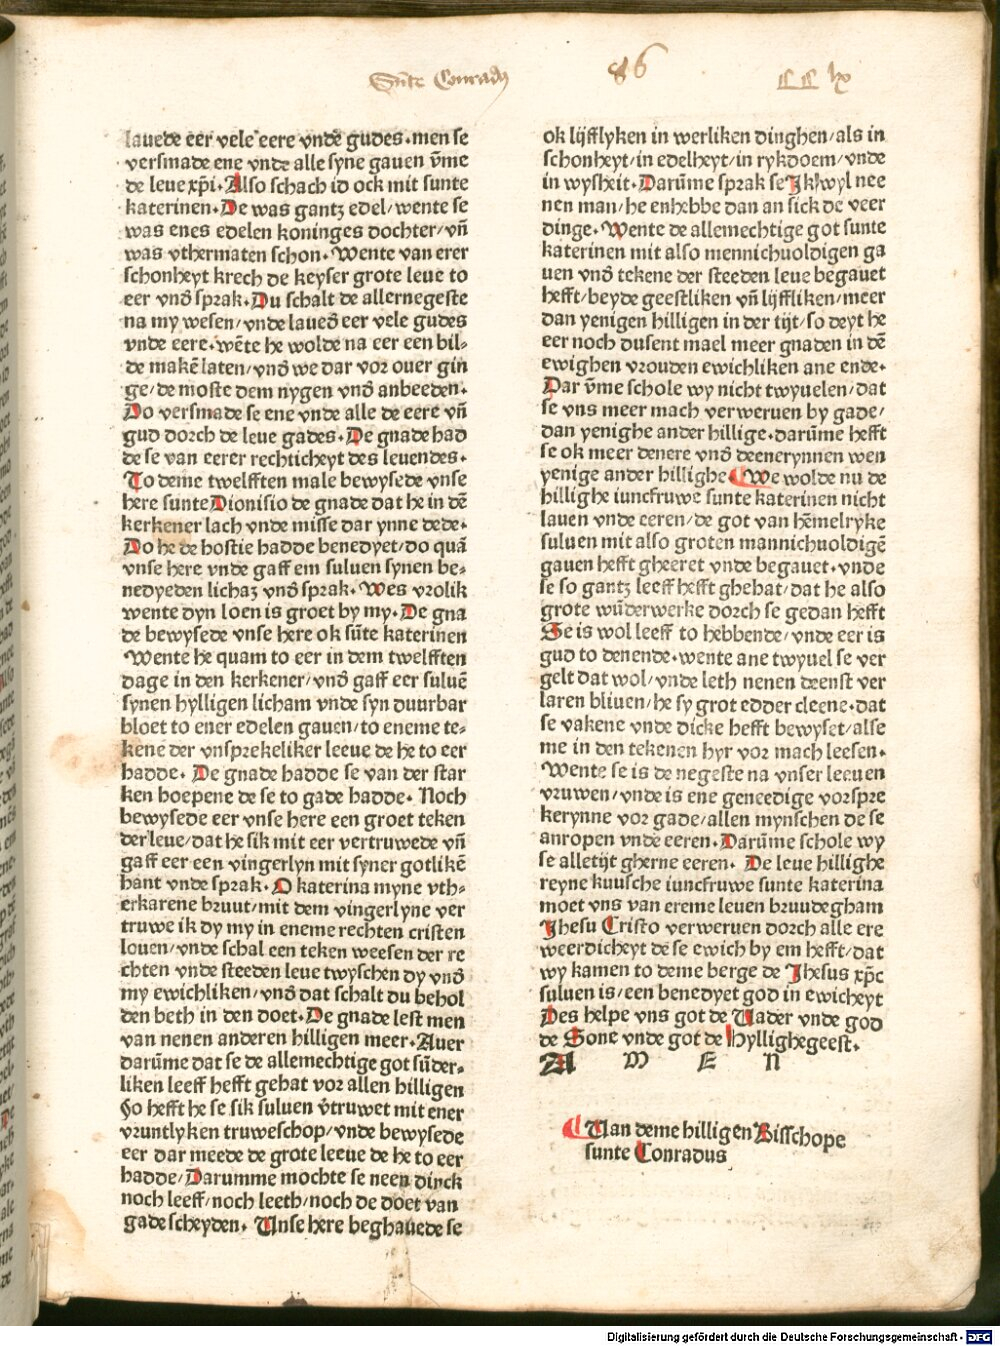 Sūte Conradꝰ
86
CC lx
lauede eer vele eere vndͤ gudes. men se
versmade ene vnde alle syne gauen v̄me
de leue xp̄i. Also schach id ock mit sunte
katerinen. De was gantz edel/ wente se
was enes edelen koninges dochter/ vn̄
was vthermaten schon. Wente van erer
schonheyt krech de keyser grote leue to
eer vnd̄ sprak. Du schalt de allernegeste
na my wesen/ vnde laued̄ eer vele gudes
vnde eere. wēte he wolde na eer een bil⸗
de makē laten/ vnd̄ we dar vor ouer gin
ge/ de moste dem nygen vnd̄ anbeeden.
Do versmade se ene vnde alle de eere vn̄
gud dorch de leue gades. De gnade had
de se van eerer rechticheyt des leuendes.
To deme twelfften male bewysede vnse
here sunte Dionisio de gnade dat he in dē
kerkener lach vnde misse dar ynne dede.
Do he de hostie hadde benedyet/ do quā
vnse here vnde gaff em suluen synen be⸗
nedyeden lichaz vnd̄ sprak. Wes vrolik
wente dyn loen is groet by my. De gna
de bewysede vnse here ok sūte katerinen
Wente he quam to eer in dem twelfften
dage in den kerkener/ vnd̄ gaff eer suluē
synen hylligen licham vnde syn duurbar
bloet to ener edelen gauen/ to eneme te⸗
kene der vnsprekeliker leeue de he to eer
hadde. De gnade hadde se van der star
ken hoepene de se to gade hadde. Noch
bewysede eer vnse here een groet teken
der leue/ dat he sik mit eer vertruwede vn̄
gaff eer een vingerlyn mit syner gotlikē
hant vnde sprak. O katerina myne vth⸗
erkarene bruut/ mit dem vingerlyne ver
truwe ik dy my in eneme rechten cristen
louen/ vnde schal een teken weesen der re
chten vnde steeden leue twyschen dy vnd̄
my ewichliken/ vnd̄ dat schalt du behol
den beth in den doet. De gnade lest men
van nenen anderen hilligen meer. Auer
darūme dat se de allemechtige got sūder⸗
liken leeff hefft gehat vor allen hilligen
So hefft he se sik suluen v̄truwet mit ener
vruntlyken truweschop/ vnde bewysede
eer dar meede de grote leeue de he to eer
hadde/ Darumme mochte se neen dinck
noch leeff/ noch leeth/ noch de doet van
gade scheyden. Unse here beghauede se
ok lijfflyken in werliken dinghen/ als in
schonheyt/ in edelheyt/ in rykdoem/ vnde
in wysheit. Darūme sprak se Jk wyl nee
nen man/ he enhebbe dan an sick de veer
dinge. Wente de allemechtige got sunte
katerinen mit also mennichuoldigen ga
uen vnd̄ tekene der steeden leue begauet
hefft/ beyde geestliken vn̄ lijffliken/ meer
dan yenigen hilligen in der tijt/ so deyt he
eer noch dusent mael meer gnaden in dē
ewighen vrouden ewichliken ane ende.
Dar v̄me schole wy nicht twyuelen/ dat
se vns meer mach verweruen by gade/
dan yenighe ander hillige. darūme hefft
se ok meer denere vnd̄ deenerynnen wen
yenige ander hillighe ¶ We wolde nu de
hillighe iuncfruwe sunte katerinen nicht
lauen vnde eeren/ de got van hēmelryke
suluen mit also groten mannichuoldigē
gauen hefft gheeret vnde begauet. vnde
se so gantz leeff hefft ghehat/ dat he also
grote wūderwerke dorch se gedan hefft
Se is wol leeff to hebbende/ vnde eer is
gud to denende. wente ane twyuel se ver
gelt dat wol/ vnde leth nenen deenst ver
laren bliuen/ he sy grot edder cleene. dat
se vakene vnde dicke hefft bewyset/ alse
me in den tekenen hyr vor mach leesen.
Wente se is de negeste na vnser leeuen
vruwen/ vnde is ene geneedige vorspre
kerynne vor gade/ allen mynschen de se
anropen vnde eeren. Darūme schole wy
se alletijt gherne eeren. De leue hillighe
reyne kuusche iuncfruwe sunte katerina
moet vns van ereme leuen bruudegham
Jhesu Cristo verweruen dorch alle ere
weerdicheyt de se ewich by em hefft/ dat
wy kamen to deme berge de Jhesus xp̄c
suluen is/ een benedyet god in ewicheyt
Des helpe vns got de Uader vnde god
de Sone vnde got de hyllighegeest.
A M E N
¶ Uan deme hilligen Bisschope
sunte Conradus
Digitalisierung gefördert durch die Deutsche Forschungsgemeinschaft - DFG